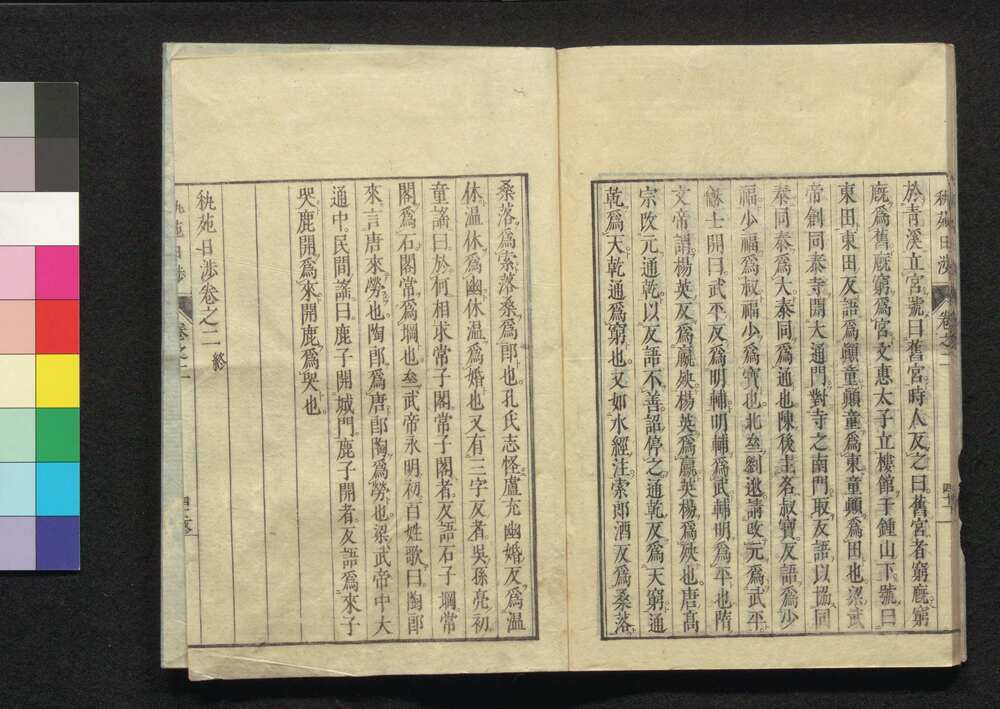 秇苑日渉
卷之二
於青溪立宮。號曰舊宮。時人反之曰。舊宮者窮廐。窮
廐爲舊。廐窮爲宮。文惠太子立樓館于鍾山下。號曰
東田。東田反語爲顚童。顚童爲東。童顚爲田也。梁武
帝創同泰寺。開大通門。對寺之南門。取反語以協同
泰。同泰爲大。泰同爲通也。陳後主名叔寶。反語爲少
福。少福爲叔。福少爲寶也。北齊劉逖請改元爲武平。
士開曰。武平反爲明輔。明輔爲武。輔明爲平也。隋
文帝謂楊英反爲羸殃。楊英爲羸。英楊爲殃也。唐高
宗改元通乾。以反語不善。詔停之。通乾反爲天窮。通
乾爲天。乾通爲窮也。又如水經注。索郎酒反爲桑落。
桑落爲索。落桑爲郎也。孔氏志怪。盧充幽婚。反爲温
休。温休爲幽。休温爲婚也。又有三字反者。吳孫亮初
童謠曰。於何相求常子閣。常子閣者。反語石子堈。常
閣爲石。閣常爲堈也。齊武帝永明初。百姓歌曰。陶郎
來。言唐來勞也。陶郎爲唐。郎陶爲勞也。梁武帝中大
通中。民間謠曰。鹿子開城門。鹿子開者。反語爲來子
哭。鹿開爲來。開鹿爲哭也。
秇苑日渉卷之二 終